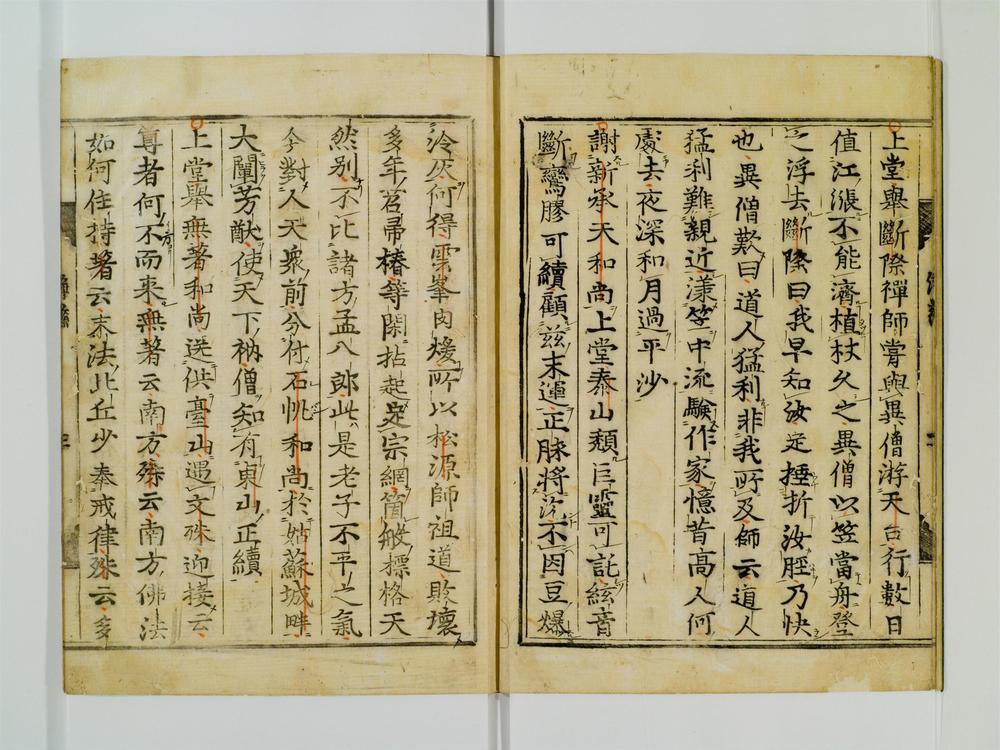 上堂舉斷際禪師嘗與異僧游天台行數日
值江漲不能濟植杖久之異僧以笠當舟登
之浮去斷際曰我早知汝定捶折汝脛乃快
也異僧歎曰道人猛利非我所及師云道人
猛利難親近漾笠中流驗作家憶昔高人何
處去夜深和月過平沙
謝新承天和尚上堂泰山頹巨鑒可託絃音
斷鸞膠可續顧茲末運正脉將沉不因豆爆
冷灰何得雲峯肉煖所以松源師祖道敗壞
多年苕帚樁等閑拈起定宗綱箇般標格天
然別不比諸方孟八郎此是老子不平之氣
今對人天衆前分付石帆和尚於姑蘇城畔
大闡芳猷使天下衲僧知有東山正續
上堂舉無著和尚送供臺山遇文殊迎接云
尊者何不而來無著云南方殊云南方佛法
如何住持著云末法比丘少奉戒律殊云多
方